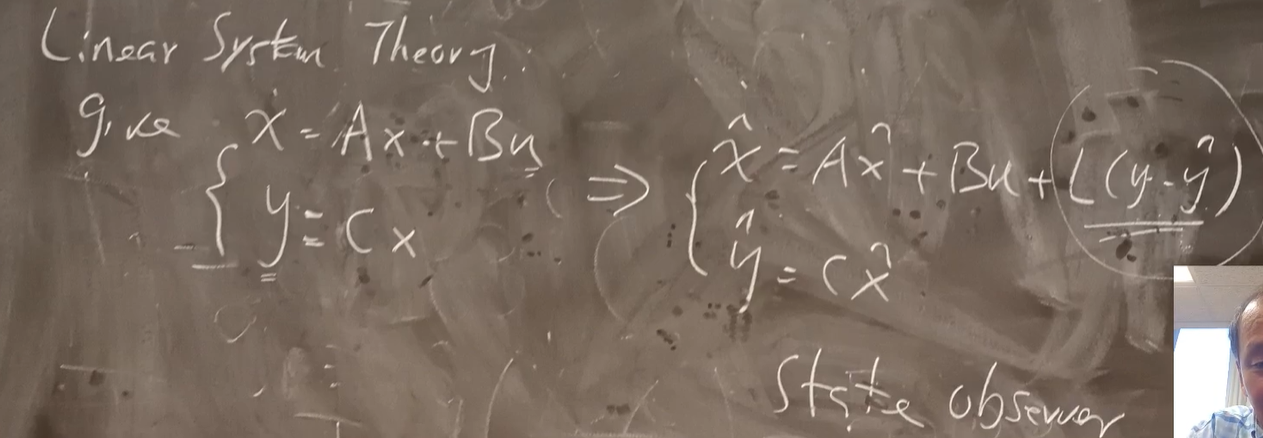 Linear System Theory.
give { ẋ = Ax + Bu ⇒ { x̂̇ = Ax̂ + Bu + L(y - ŷ)
y = Cx ŷ = Cx̂
State observer